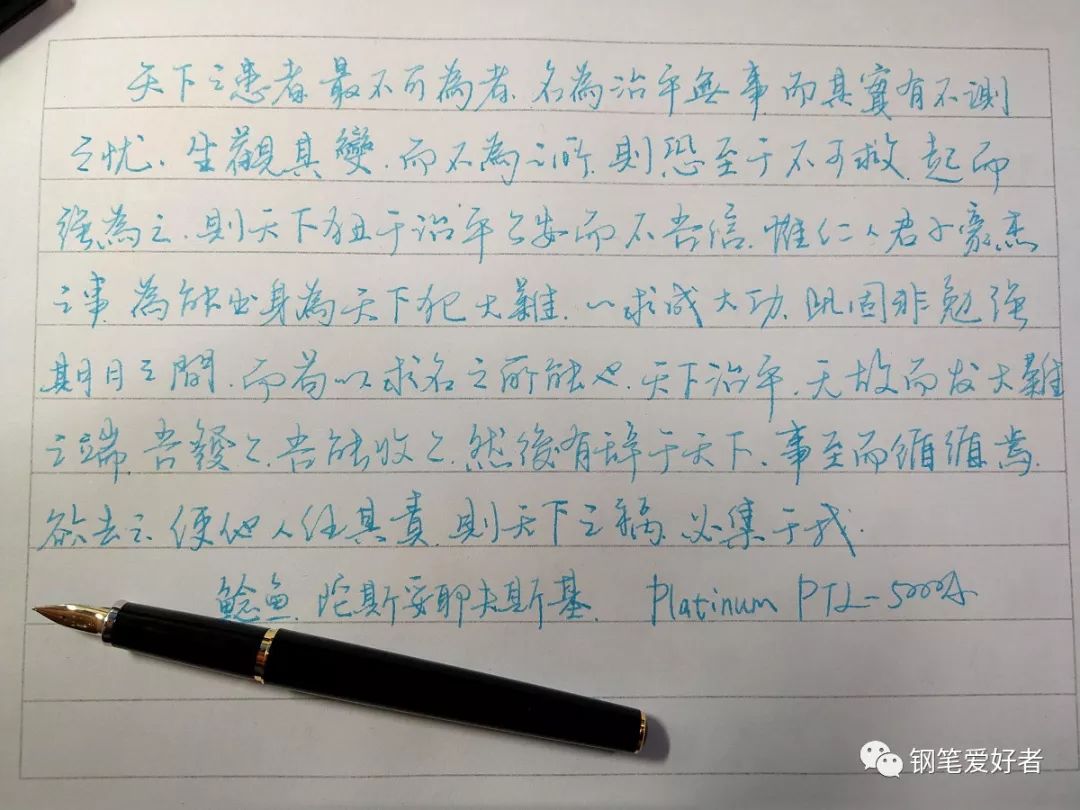 天下之患者最不可為者、名為治平無事而其實有不測
之忧、坐觀其變、而不為之所、則恐至于不可救、起而
强為之、則天下狃于治平之安而不吾信、惟仁人君子豪杰
之事、為能出身為天下犯大難、以求成大功、此固非勉强
期月之間、而苟以求名之所能也、天下治平、无故而发大難
之端、吾發之、吾能收之、然後有辞于天下、事至而循循焉、
欲去之、使他人任其責、則天下之禍、必集于我、
鯰鱼、陀斯妥耶夫斯基、 Platinum PTL-5000A
钢笔爱好者